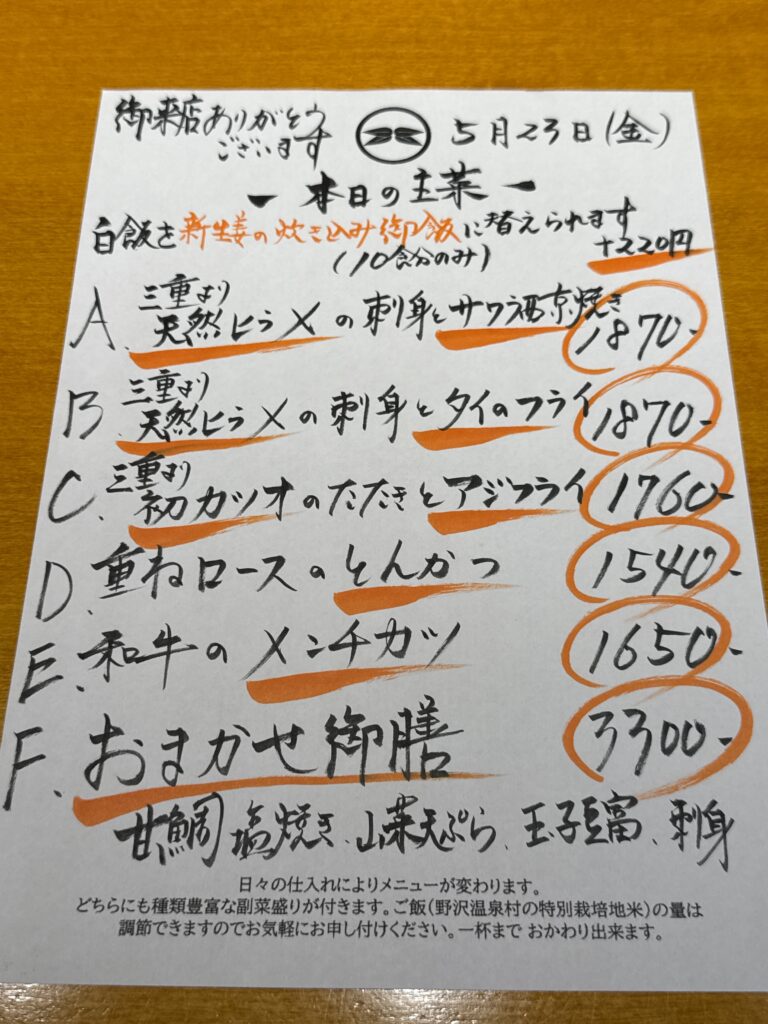 御来店ありがとう
ございます
5月23日(金)
ー 本日の主菜 ー
白飯を新生姜の炊き込み御飯に替えられます
(10食分のみ)
+220円
A. 三重より
天然ヒラメの刺身とサワラ西京焼き 1870-
B. 三重より
天然ヒラメの刺身とタイのフライ 1870-
C. 三重より
初カツオのたたきとアジフライ 1760-
D. 重ねロースのとんかつ 1540-
E. 和牛のメンチカツ 1650-
F. おまかせ御膳 3300-
甘鯛塩焼き、山菜天ぷら、玉子豆富、刺身
日々の仕入れによりメニューが変わります。
どちらにも種類豊富な副菜盛りが付きます。ご飯(野沢温泉村の特別栽培地米)の量は
調節できますのでお気軽にお申し付けください。一杯まで おかわり出来ます。